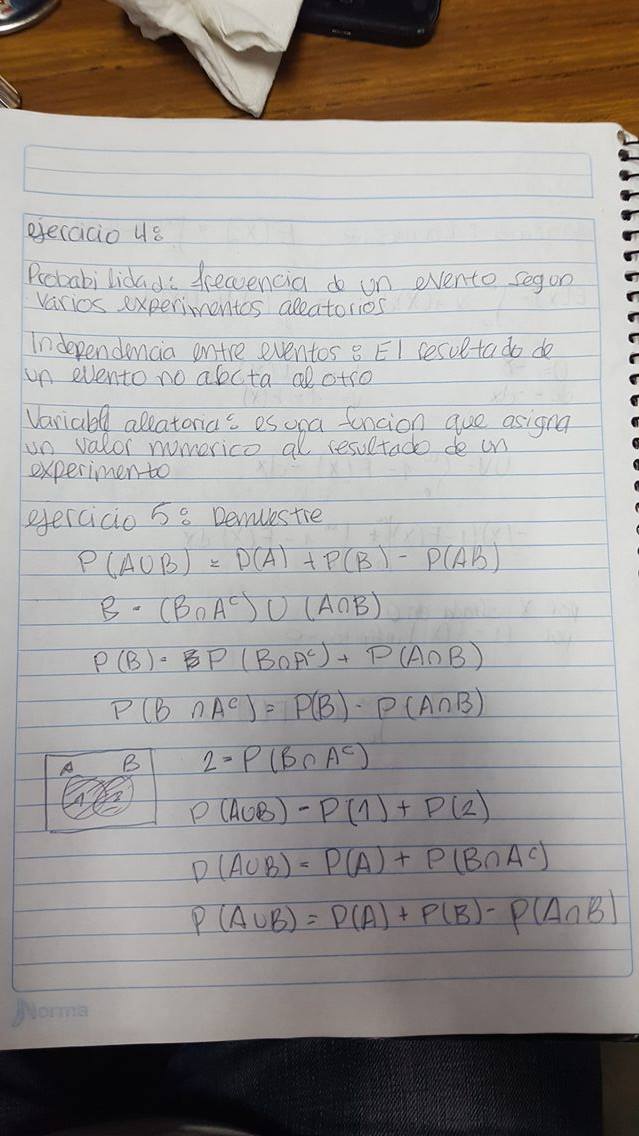 ejercicio 4:
Probabilidad: frecuencia de un evento segun
varios experimentos aleatorios
Independencia entre eventos: El resultado de
un evento no abcta al otro
Variable alleatoria: es una funcion que asigna
un valor numerico al resultado de un
experimento
ejercicio 5: Demuestre
P(A∪B) = P(A) + P(B) - P(AB)
B = (B∩Aᶜ) ∪ (A∩B)
P(B) = P(B∩Aᶜ) + P(A∩B)
P(B ∩Aᶜ) = P(B) - P(A∩B)
A B
1 2
2 = P(B∩Aᶜ)
P(A∪B) = P(1) + P(2)
P(A∪B) = P(A) + P(B∩Aᶜ)
P(A∪B) = P(A) + P(B) - P(A∩B)
Norma